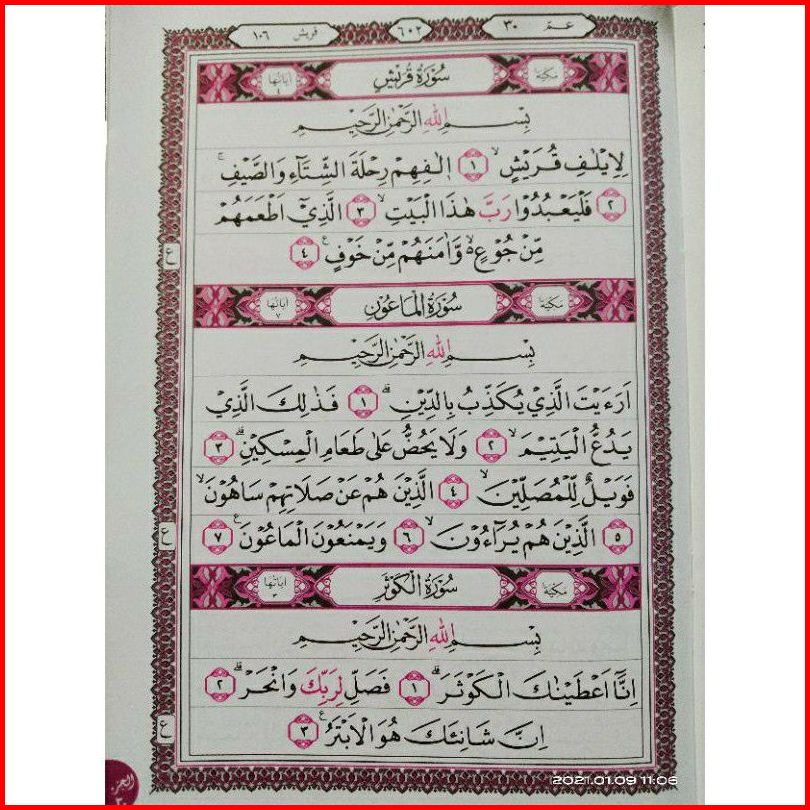 عمّ ٣٠ ٦٠٢ قريش ١٠٦
مكية سُوْرَةُ قُرَيْشٍ اٰيَاتُهَا ٤
بِسْــمِ اللهِ الرَّحْمٰنِ الرَّحِيْــمِ
لِاِيْلٰفِ قُرَيْشٍۙ ١ اٖلٰفِهِمْ رِحْلَةَ الشِّتَاۤءِ وَالصَّيْفِۚ
٢ فَلْيَعْبُدُوْا رَبَّ هٰذَا الْبَيْتِۙ ٣ الَّذِيْٓ اَطْعَمَهُمْ
مِّنْ جُوْعٍ ەۙ وَّاٰمَنَهُمْ مِّنْ خَوْفٍࣖ ٤
ع
مكية سُوْرَةُ الْمَاعُوْنِ اٰيَاتُهَا ٧
بِسْــمِ اللهِ الرَّحْمٰنِ الرَّحِيْــمِ
اَرَءَيْتَ الَّذِيْ يُكَذِّبُ بِالدِّيْنِۗ ١ فَذٰلِكَ الَّذِيْ
يَدُعُّ الْيَتِيْمَۙ ٢ وَلَا يَحُضُّ عَلٰى طَعَامِ الْمِسْكِيْنِۗ ٣
فَوَيْلٌ لِّلْمُصَلِّيْنَۙ ٤ الَّذِيْنَ هُمْ عَنْ صَلَاتِهِمْ سَاهُوْنَۙ
٥ الَّذِيْنَ هُمْ يُرَاۤءُوْنَۙ ٦ وَيَمْنَعُوْنَ الْمَاعُوْنَࣖ ٧
ع
مكية سُوْرَةُ الْكَوْثَرِ اٰيَاتُهَا ٣
بِسْــمِ اللهِ الرَّحْمٰنِ الرَّحِيْــمِ
اِنَّآ اَعْطَيْنٰكَ الْكَوْثَرَۗ ١ فَصَلِّ لِرَبِّكَ وَانْحَرْۗ ٢
اِنَّ شَانِئَكَ هُوَ الْاَبْتَرُࣖ ٣
ع
الجزء ٣٠
2021.01.09 11:06